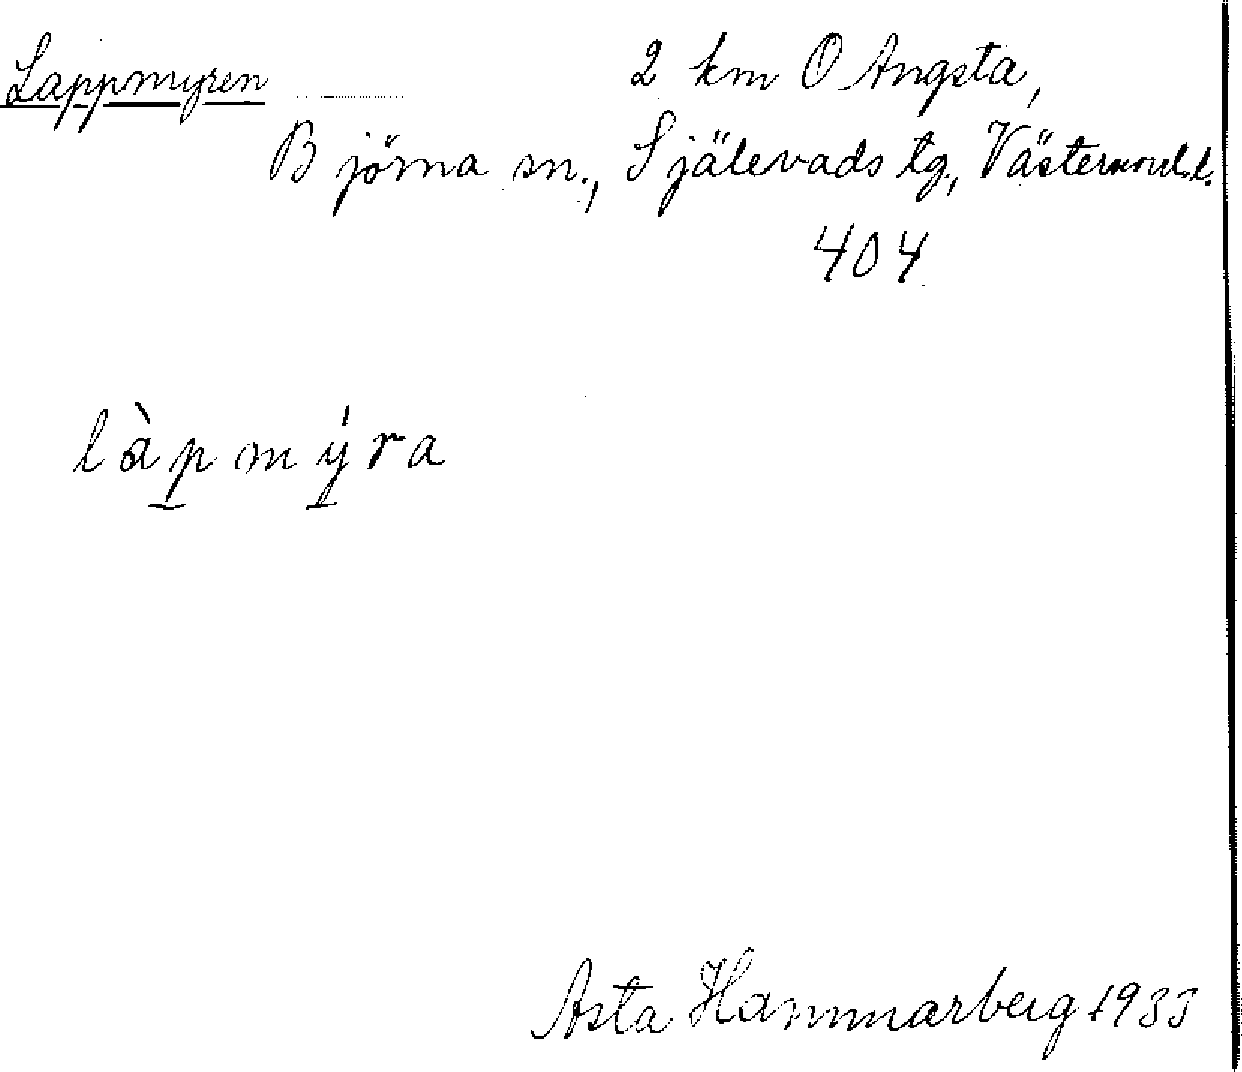 Lappmyren 2 km O Angsta,
Björna sn., Själevads tg., Västernorrl. l.
404
làpmýra
Asta Hammarberg 1935